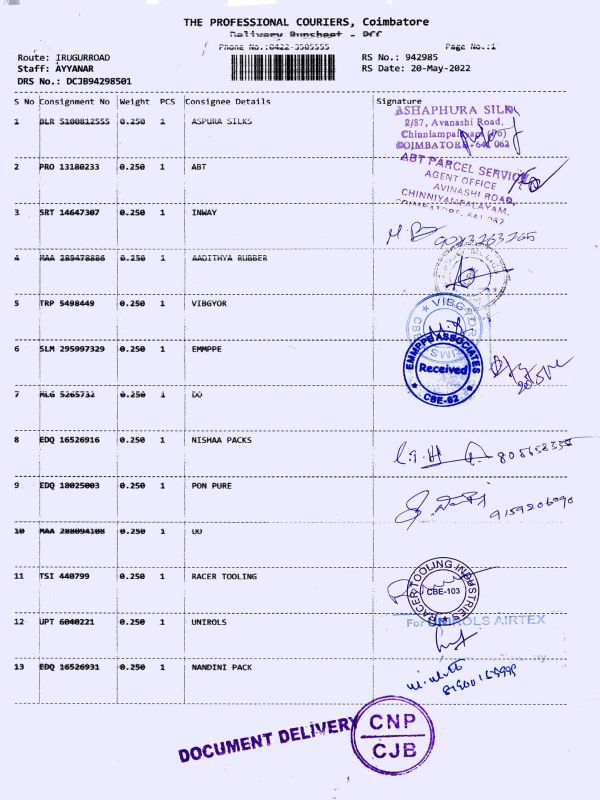 THE PROFESSIONAL COURIERS, Coimbatore
Delivery Runsheet - DCC
Phone No.:0422-3505555 Page No.:1
Route: IRUGURROAD RS No.: 942985
Staff: AYYANAR RS Date: 20-May-2022
DRS No.: DCJB94298501
S No Consignment No Weight PCS Consignee Details Signature
1 BLR 5100812555 0.250 1 ASPURA SILKS
ASHAPHURA SILK
2/87, Avanashi Road,
Chinniampalayam (Po)
COIMBATORE - 641 062
2 PRO 13180233 0.250 1 ABT
ABT PARCEL SERVICE
AGENT OFFICE
AVINASHI ROAD,
CHINNIYAMPALAYAM,
COIMBATORE. 641 062
3 SRT 14647307 0.250 1 INWAY
4 MAA 289478886 0.250 1 AADITHYA RUBBER
5 TRP 5498449 0.250 1 VIBGYOR
VIBGYOR
6 SLM 295997329 0.250 1 EMMPPE
EMMPPE ASSOCIATES
Received
CBE-62
7 MLG 5265732 0.250 1 DO
8 EDQ 16526916 0.250 1 NISHAA PACKS
9 EDQ 18025003 0.250 1 PON PURE
9159206090
10 MAA 288094108 0.250 1 DO
11 TSI 440799 0.250 1 RACER TOOLING
RACER TOOLING INDUSTRIES
CBE-103
12 UPT 6040221 0.250 1 UNIROLS
For UNIROLS AIRTEX
13 EDQ 16526931 0.250 1 NANDINI PACK
DOCUMENT DELIVERY
CNP
CJB